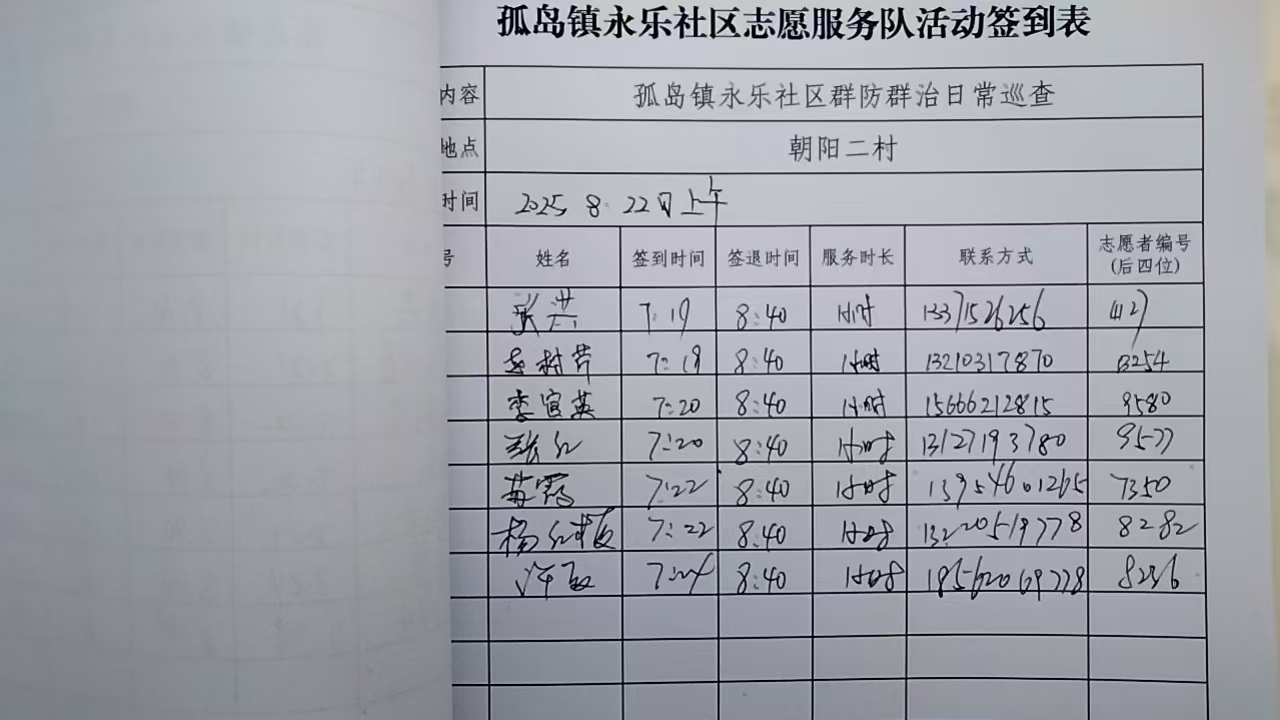 孤岛镇永乐社区志愿服务队活动签到表
内容 孤岛镇永乐社区群防群治日常巡查
地点 朝阳二村
时间 2025 8.22日上午
号 姓名 签到时间 签退时间 服务时长 联系方式 志愿者编号
(后四位)
7:19 8:40 1小时 13371526256 4127
村芹 7:19 8:40 1小时 13210317870 3254
李宜英 7:20 8:40 1小时 15666212815 9580
张红 7:20 8:40 1小时 13127193780 9577
苗霞 7:22 8:40 1小时 13954601265 7350
杨红 7:22 8:40 1小时 13220519778 8282
7:24 8:40 1小时 8236